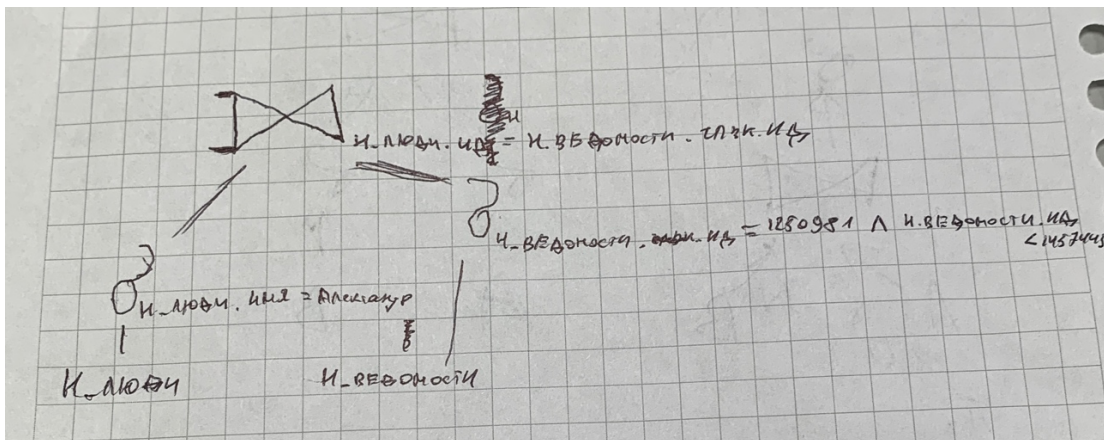 Н_ЛЮДИ.ИД = Н_ВЕДОМОСТИ.ЧЛВК_ИД
Н_ВЕДОМОСТИ.ИД = 1250981 ∧ Н_ВЕДОМОСТИ.ИД
<1457443
Н_ЛЮДИ.ИМЯ = Александр
Н_ЛЮДИ
Н_ВЕДОМОСТИ